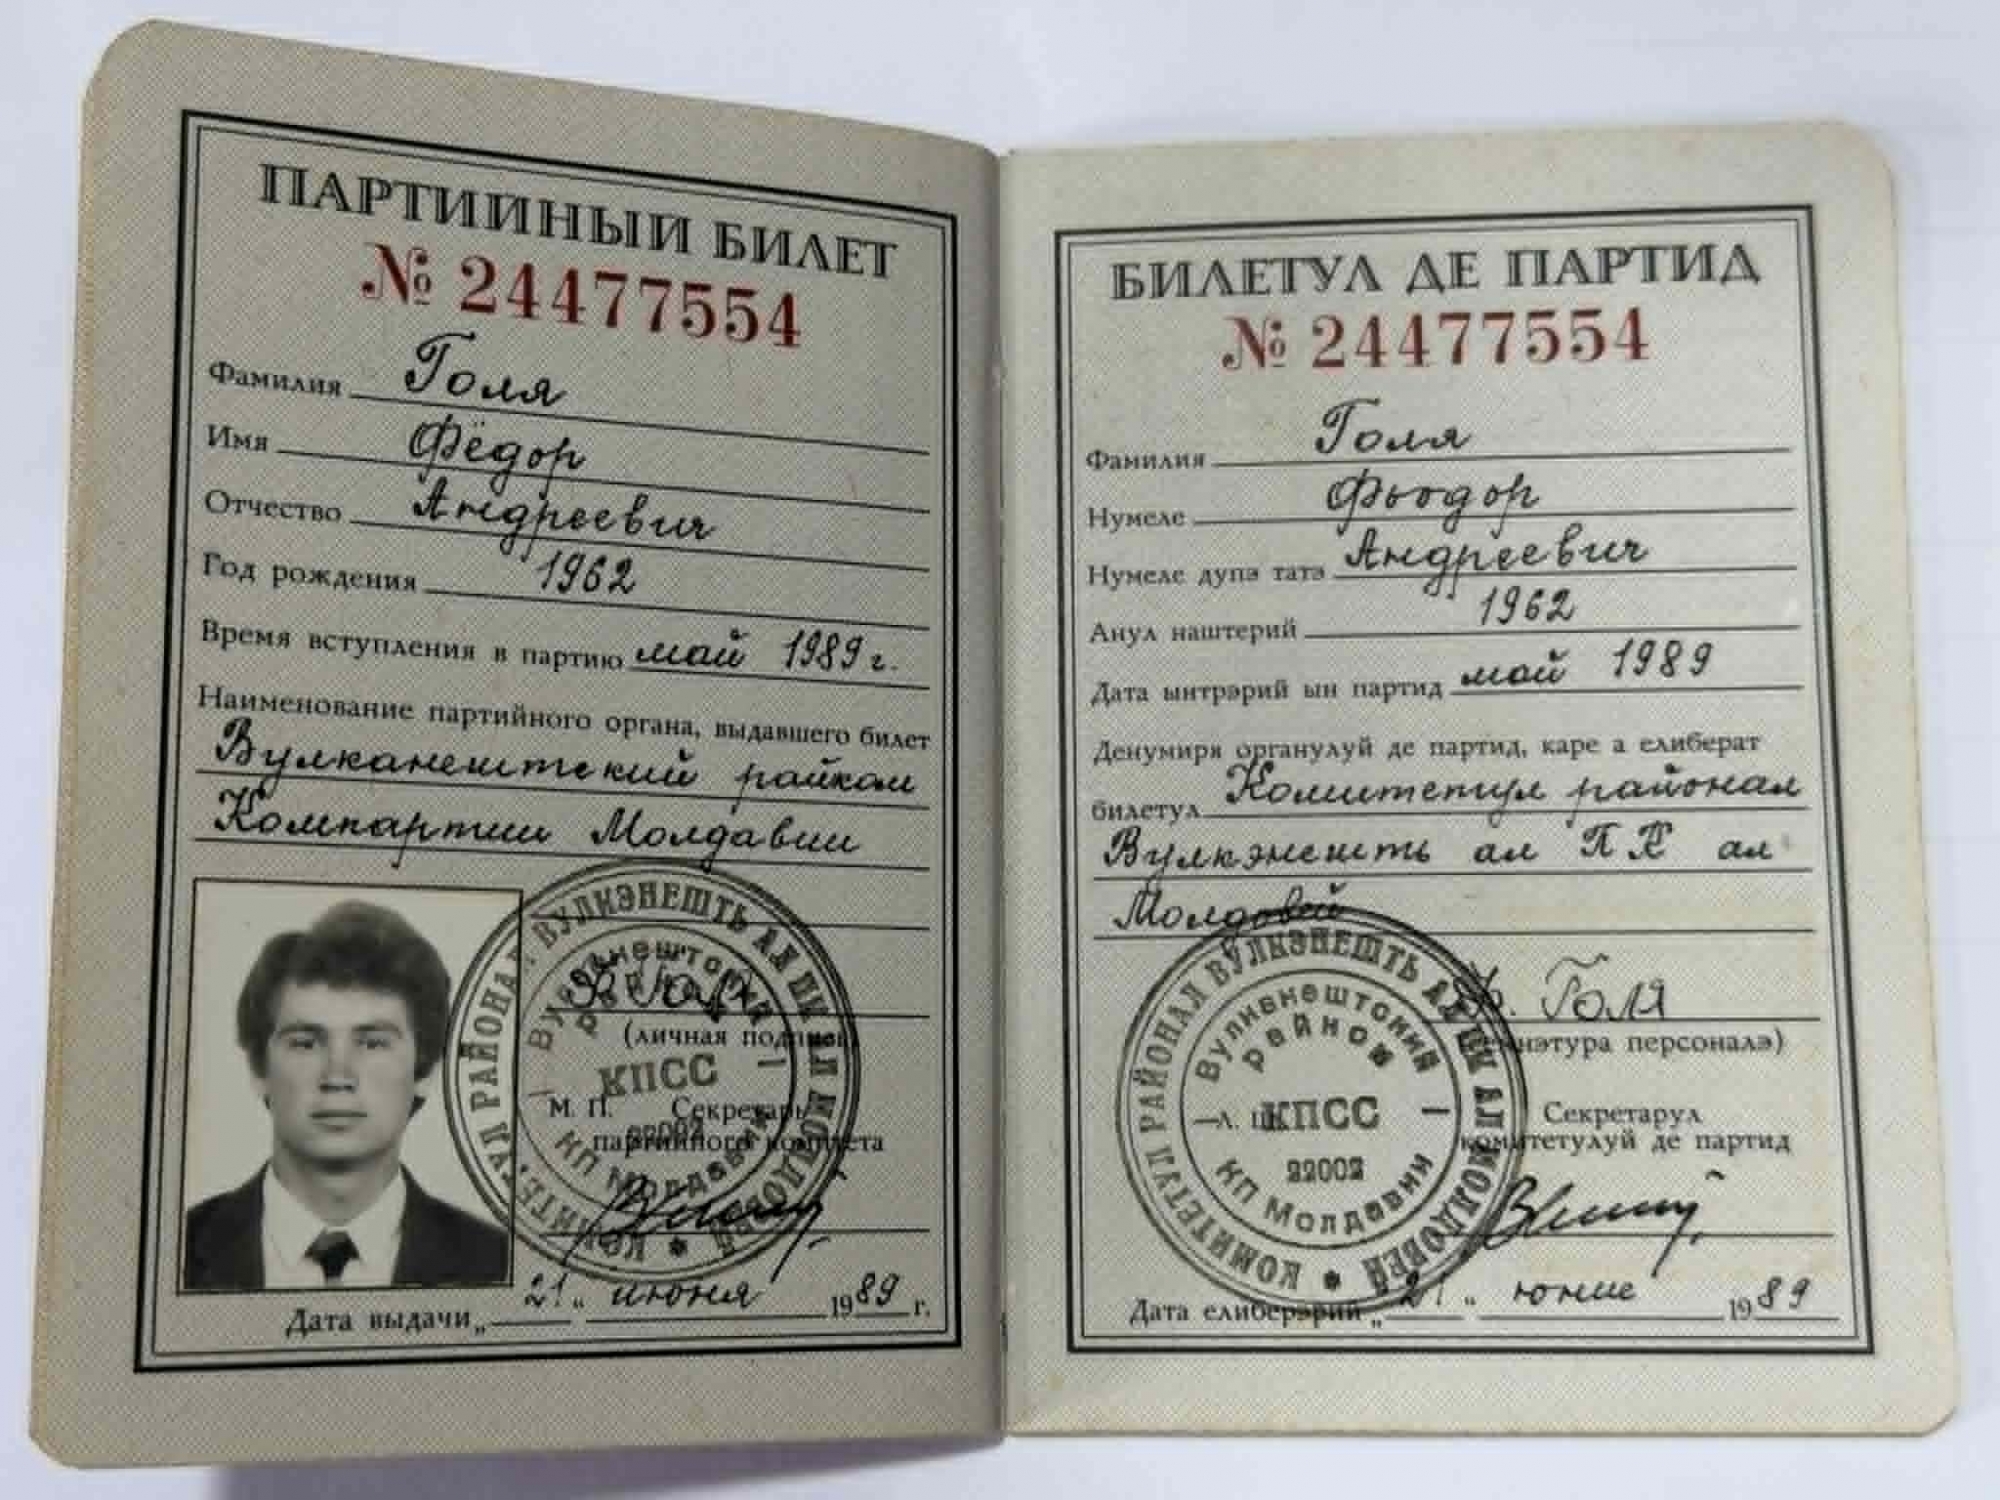 ПАРТИЙНЫЙ БИЛЕТ
№ 24477554
Фамилия Голя
Имя Фёдор
Отчество Андреевич
Год рождения 1962
Время вступления в партию май 1989 г.
Наименование партийного органа, выдавшего билет
Вулканештский райком
Компартии Молдавии
Ф. Голя
(личная подпись)
М. П. Секретарь
партийного комитета
Дата выдачи „21“ июня 1989 г.
КОМИТЕТУЛ РАЙОНАЛ ВУЛКЭНЕШТЬ АЛ ПК АЛ МОЛДОВЕЙ
Вулканештский
райком
КПСС
22002
КП Молдавии
БИЛЕТУЛ ДЕ ПАРТИД
№ 24477554
Фамилия Голя
Нумеле Фьодор
Нумеле дупэ татэ Андреевич
Анул наштерий 1962
Дата ынтрэрий ын партид май 1989
Денумиря органулуй де партид, каре а елиберат
билетул Комитетул районал
Вулкэнешть ал ПК ал
Молдовей
Ф. Голя
(семнэтура персоналэ)
Л. Шт. Секретарул
комитетулуй де партид
Дата елиберэрий „21“ юние 1989
КОМИТЕТУЛ РАЙОНАЛ ВУЛКЭНЕШТЬ АЛ ПК АЛ МОЛДОВЕЙ
Вулканештский
райком
КПСС
22002
КП Молдавии